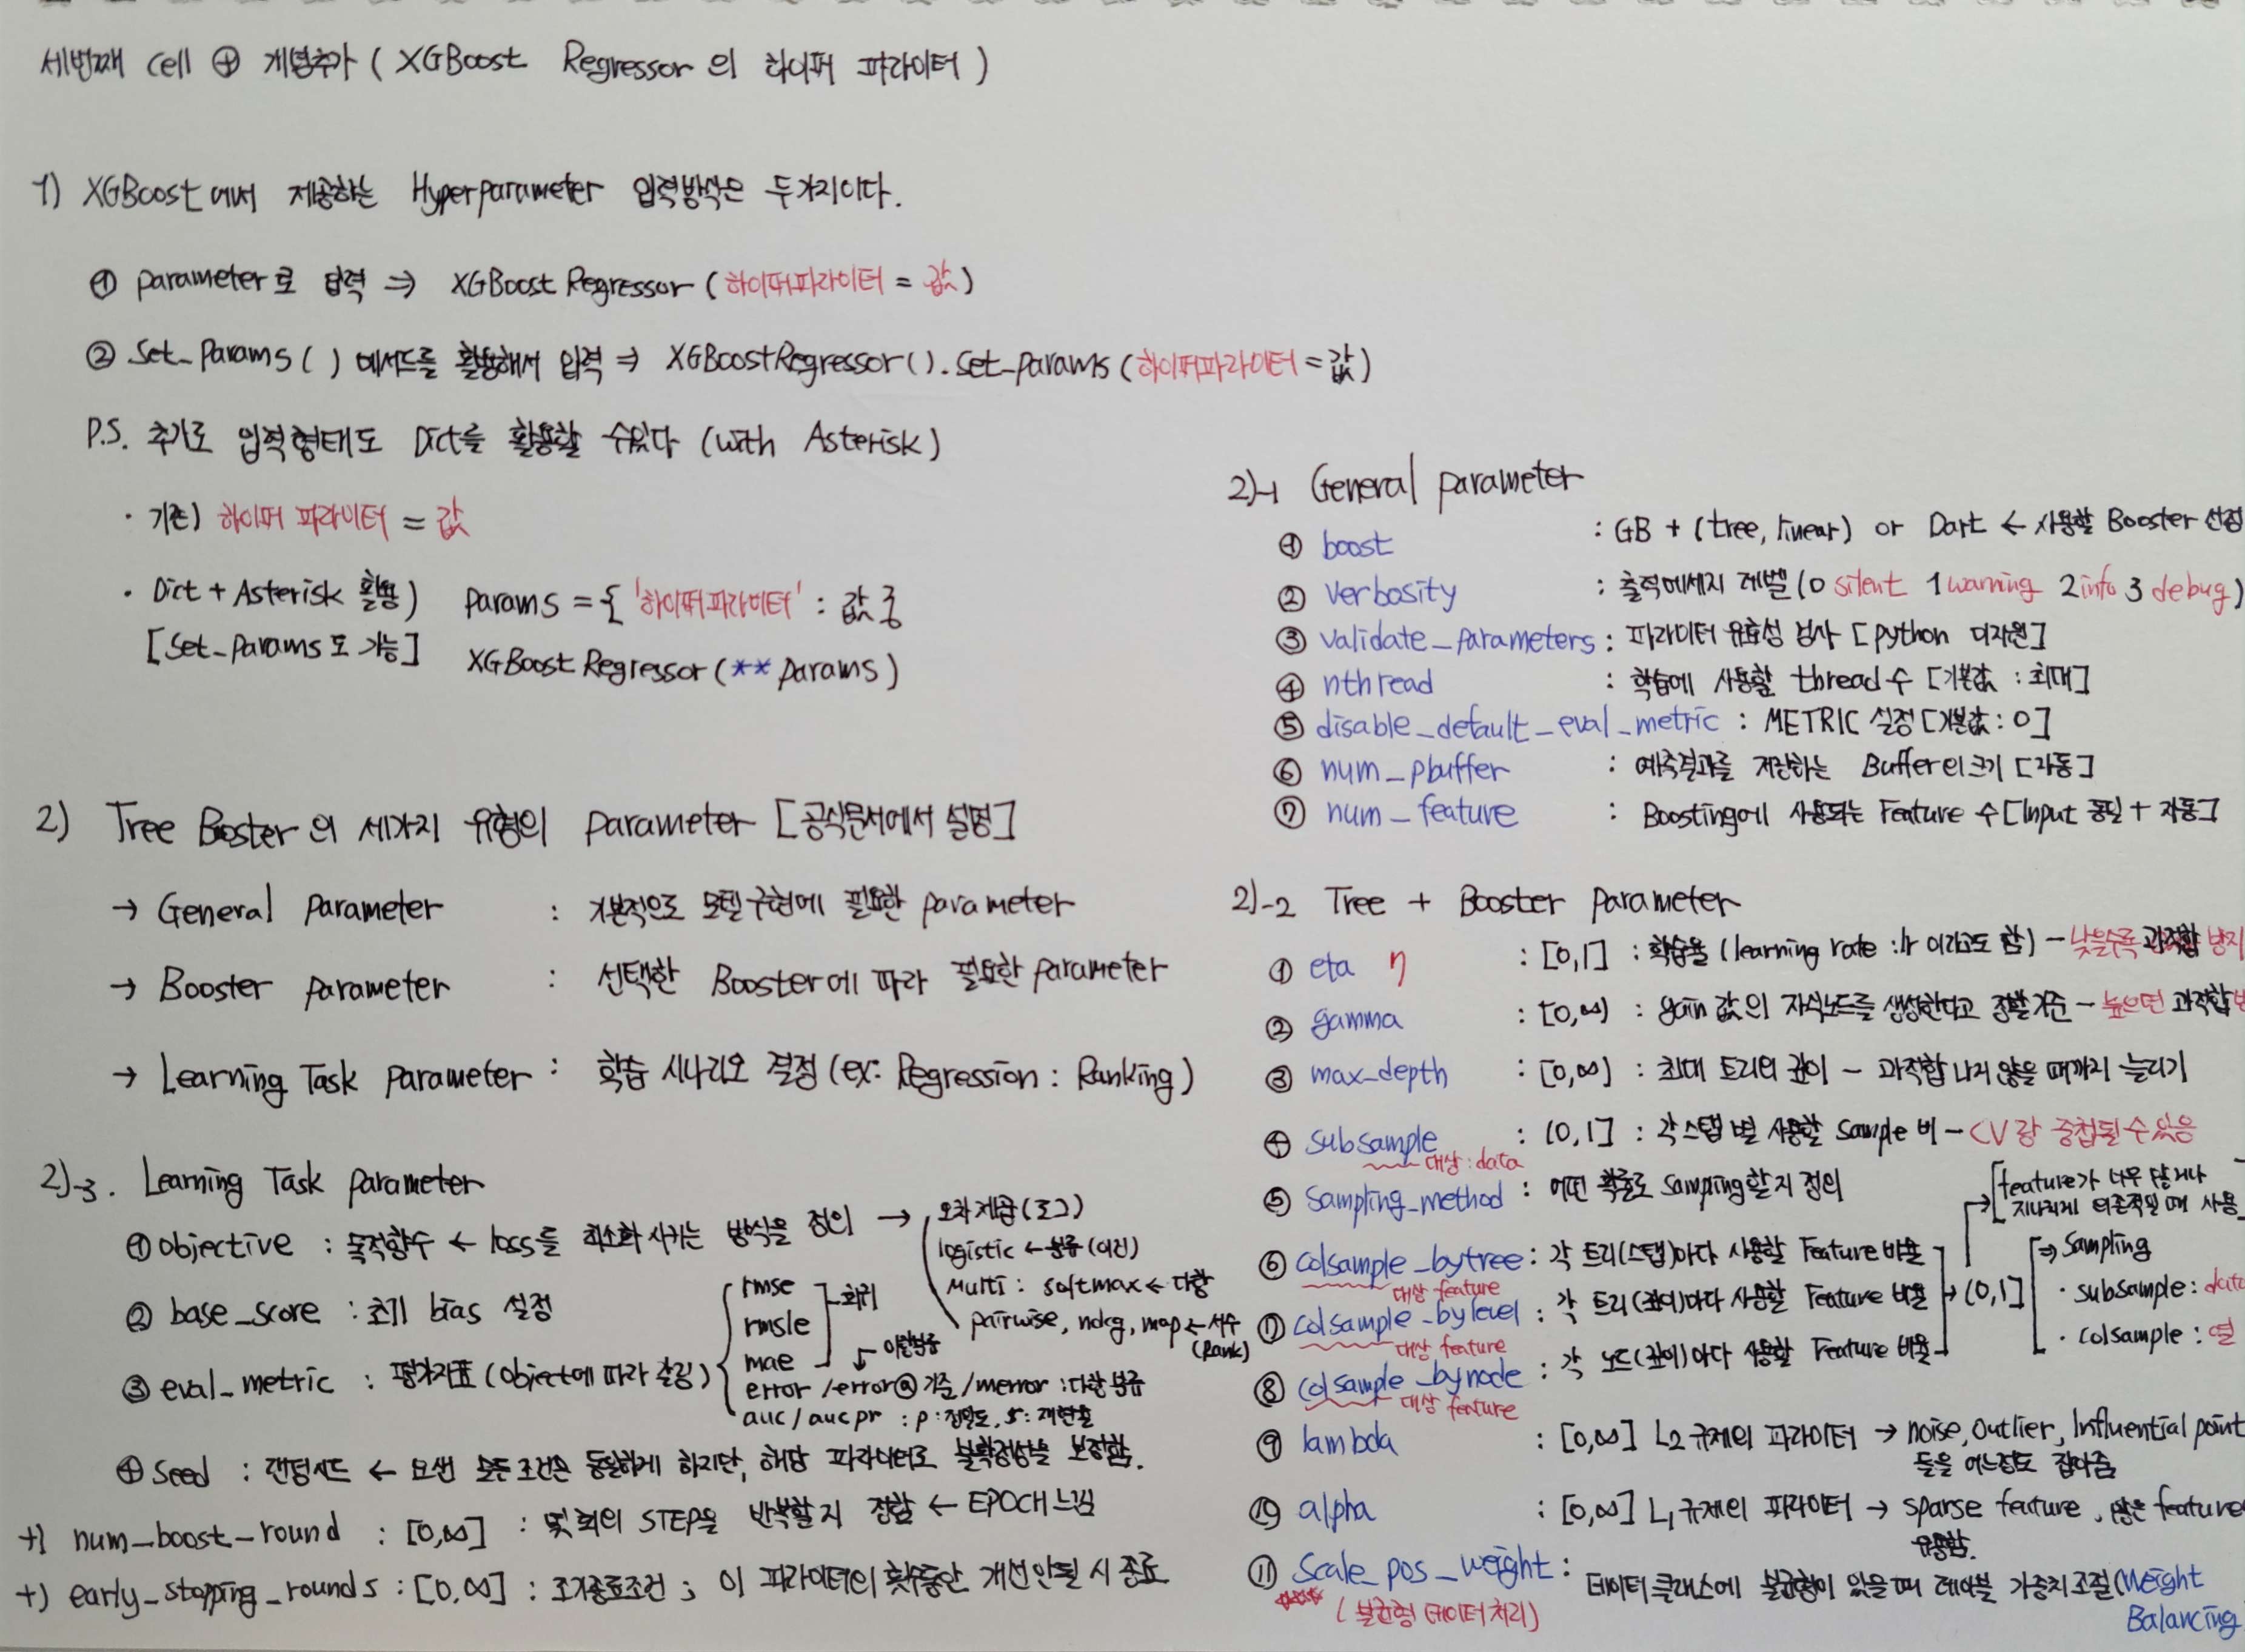 세번째 cell ⊕ 개념추가 ( XGBoost Regressor 의 하이퍼 파라미터 )
1) XGBoost에서 제공하는 Hyperparameter 입력방식은 두가지이다.
① parameter로 입력 ⇒ XGBoost Regressor ( 하이퍼파라미터 = 값 )
② Set_Params ( ) 메서드를 활용해서 입력 ⇒ XGBoostRegressor().set_params (하이퍼파라미터 = 값)
P.S. 추가로 입력형태도 Dict를 활용할 수있다 (with Asterisk)
· 기존) 하이퍼 파라미터 = 값
· Dict + Asterisk 활용) params = { '하이퍼파라미터' : 값 }
[Set_params도 가능] XGBoost Regressor (** params )
2) Tree Booster의 세가지 유형의 parameter [공식문서에서 설명]
→ General parameter : 기본적으로 모델구현에 필요한 parameter
→ Booster parameter : 선택한 Booster에 따라 필요한 parameter
→ Learning Task parameter : 학습 시나리오 결정 (ex: Regression : Ranking)
2)-3. Learning Task parameter
① objective : 목적함수 ← loss를 최소화 시키는 방식을 정의 → 오차제곱(로그)
logistic ← 분류(이진)
Multi : softmax ← 다항
pairwise, ndcg, map ← 서수 (Rank)
② base_score : 초기 bias 설정
③ eval_metric : 평가지표 (object에 따라 갈림)
rmse
rmsle
mae
회귀
이진분류
error / error@기준 / merror : 다항 분류
auc / aucpr : p : 정밀도, r : 재현율
④ seed : 랜덤시드 ← 모든 조건은 동일하게 하지만, 해당 파라미터로 불확정성을 보장함.
+) num_boost_round : [0,∞] : 몇 회의 STEP을 반복할지 정함 ← EPOCH 느낌
+) early_stopping_rounds : [0,∞] : 조기종료조건 ; 이 파라미터의 횟수동안 개선안될 시 종료
2)-1 General parameter
① boost : GB + (tree, linear) or Dart ← 사용할 Booster 선정
② verbosity : 출력메세지 레벨 (0 silent 1 warning 2 info 3 debug)
③ validate_parameters : 파라미터 유효성 검사 [python 미지원]
④ nthread : 학습에 사용할 thread 수 [기본값 : 최대]
⑤ disable_default_eval_metric : METRIC 설정 [기본값 : 0]
⑥ num_pbuffer : 예측결과를 저장하는 Buffer의 크기 [자동]
⑦ num_feature : Boosting에 사용되는 Feature 수 [Input 동일 + 자동]
2)-2 Tree + Booster parameter
① eta η : [0,1] : 학습율 (learning rate : lr 이라고도 함) - 낮을수록 과적합 방지
② gamma : [0,∞) : gain 값의 자식노드를 생성한다고 정할 기준 - 높으면 과적합
③ max_depth : [0,∞] : 최대 트리의 깊이 - 과적합 나지 않을 때까지 늘리기
④ subsample : (0,1] : 각 스탭 별 사용할 sample 비 - CV랑 중첩될 수 있음
대상 : data
⑤ sampling_method : 어떤 확률로 sampling할지 정의
[feature가 너무 많거나
지나치게 의존적일 때 사용
⑥ colsample_bytree : 각 트리(스탭)마다 사용할 Feature 비율
대상 feature
⑦ colsample_bylevel : 각 트리(깊이)마다 사용할 Feature 비율
대상 feature
⑧ colsample_bynode : 각 노드(깊이)마다 사용할 Feature 비율
대상 feature
→ (0,1]
⇒ sampling
· subsample : data
· colsample : 열
⑨ lambda : [0,∞] L2 규제의 파라미터 → noise, outlier, Influential point
들을 어느정도 잡아줌
⑩ alpha : [0,∞] L1 규제의 파라미터 → sparse feature, 많은 feature
유용함.
⑪ scale_pos_weight : 데이터 클래스에 불균형이 있을 때 레이블 가중치 조절 (Weight
Balancing
(불균형 데이터 처리)